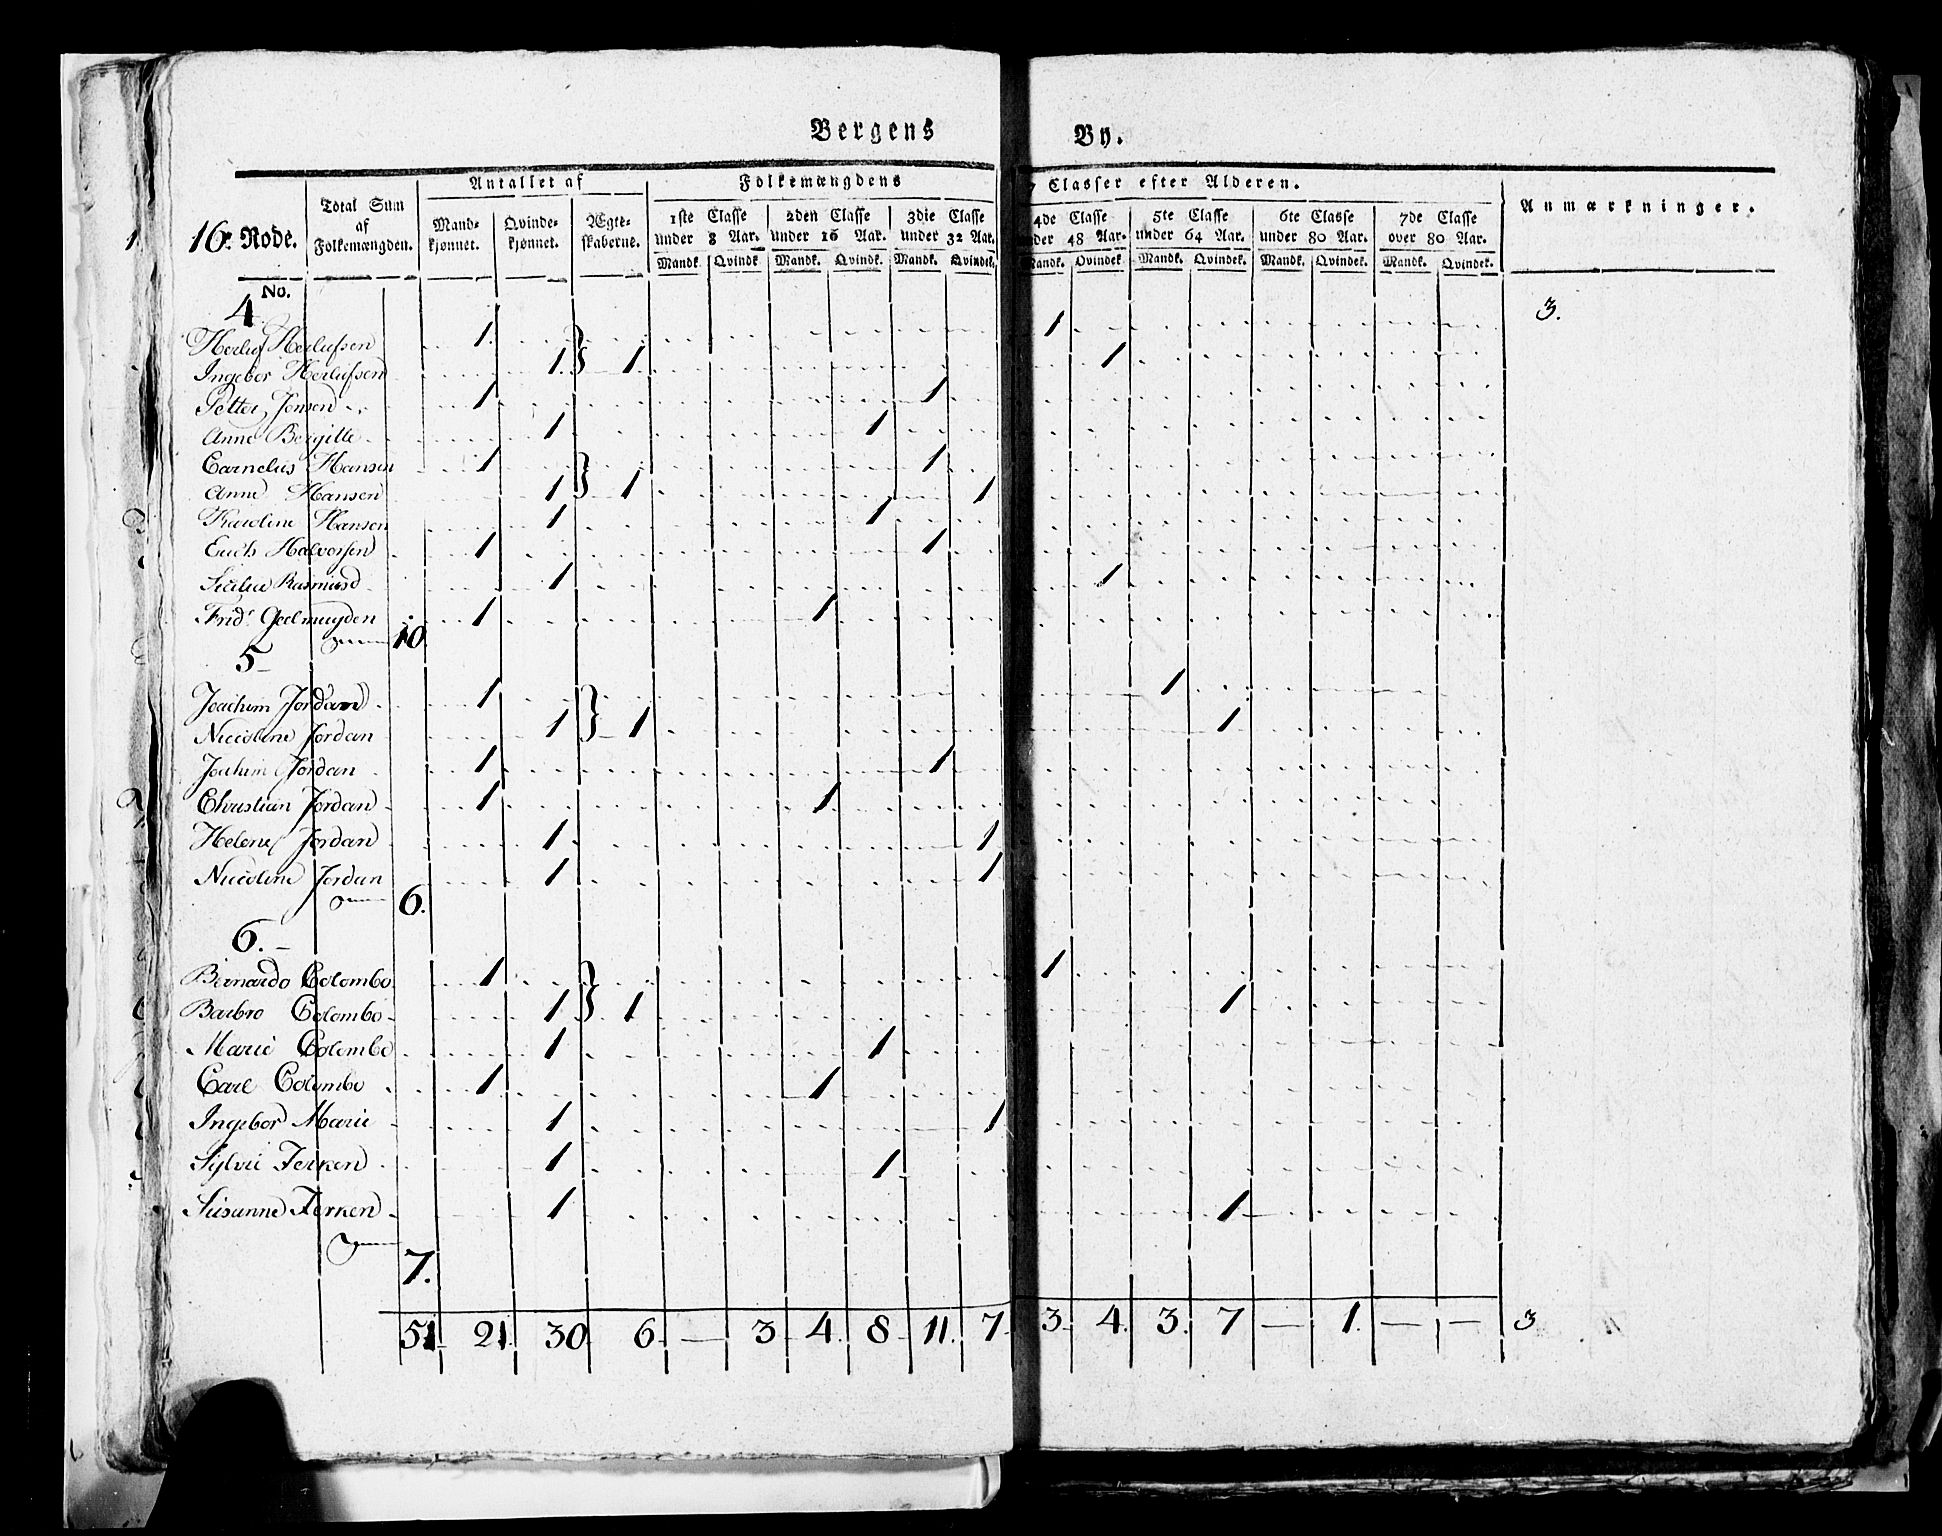 Bergens By.
16de Rode.
Total Sum af Folkemængden.
Antallet af
Mandkjønnet. Qvindekjønnet. Ægteskaberne.
Folkemængdens 7 Classer efter Alderen.
1ste Classe under 8 Aar. 2den Classe under 16 Aar. 3die Classe under 32 Aar. 4de Classe under 48 Aar. 5te Classe under 64 Aar. 6te Classe under 80 Aar. 7de Classe over 80 Aar.
Mandk. Qvindek. Mandk. Qvindek. Mandk. Qvindek. Mandk. Qvindek. Mandk. Qvindek. Mandk. Qvindek. Mandk. Qvindek.
Anmærkninger.
No.
4 3.
Herluf Herlufsen 1 1
Ingebor Herlufsen 1 } 1 1
Petter Jensen 1 1
Anne Bergitte 1 1
Carnelius Hansen 1 1
Anne Hansen 1 } 1 1
Karoline Hansen 1 1
Erich Halvorsen 1 1
Sicilia Rasmusd 1 1
Fridr Geelmuyden 1 1
10.
5
Joachim Jordan 1 1
Nicoline Jordan 1 } 1 1
Joachim Jordan 1 1
Christian Jordan 1 1
Helene Jordan 1 1
Nicoline Jordan 1 1
6.
6.
Bernardo Colombo 1 1
Barbro Colombo 1 } 1 1
Marie Colombo 1 1
Carl Colombo 1 1
Ingebor Marie 1 1
Sylvie Terken 1 1
Susanne Terken 1 1
7.
51 21 30 6 — 3 4 8 11 7 3 4 3 7 — 1 — — 3